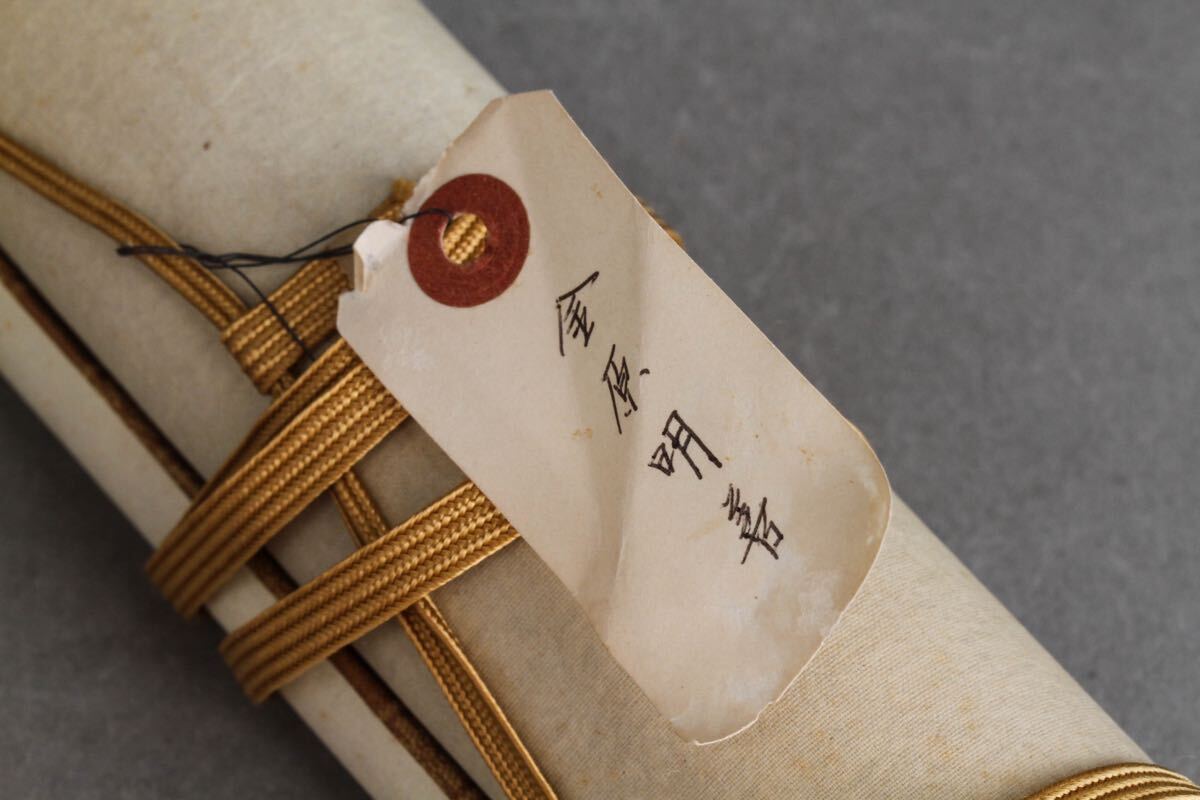 金原明善